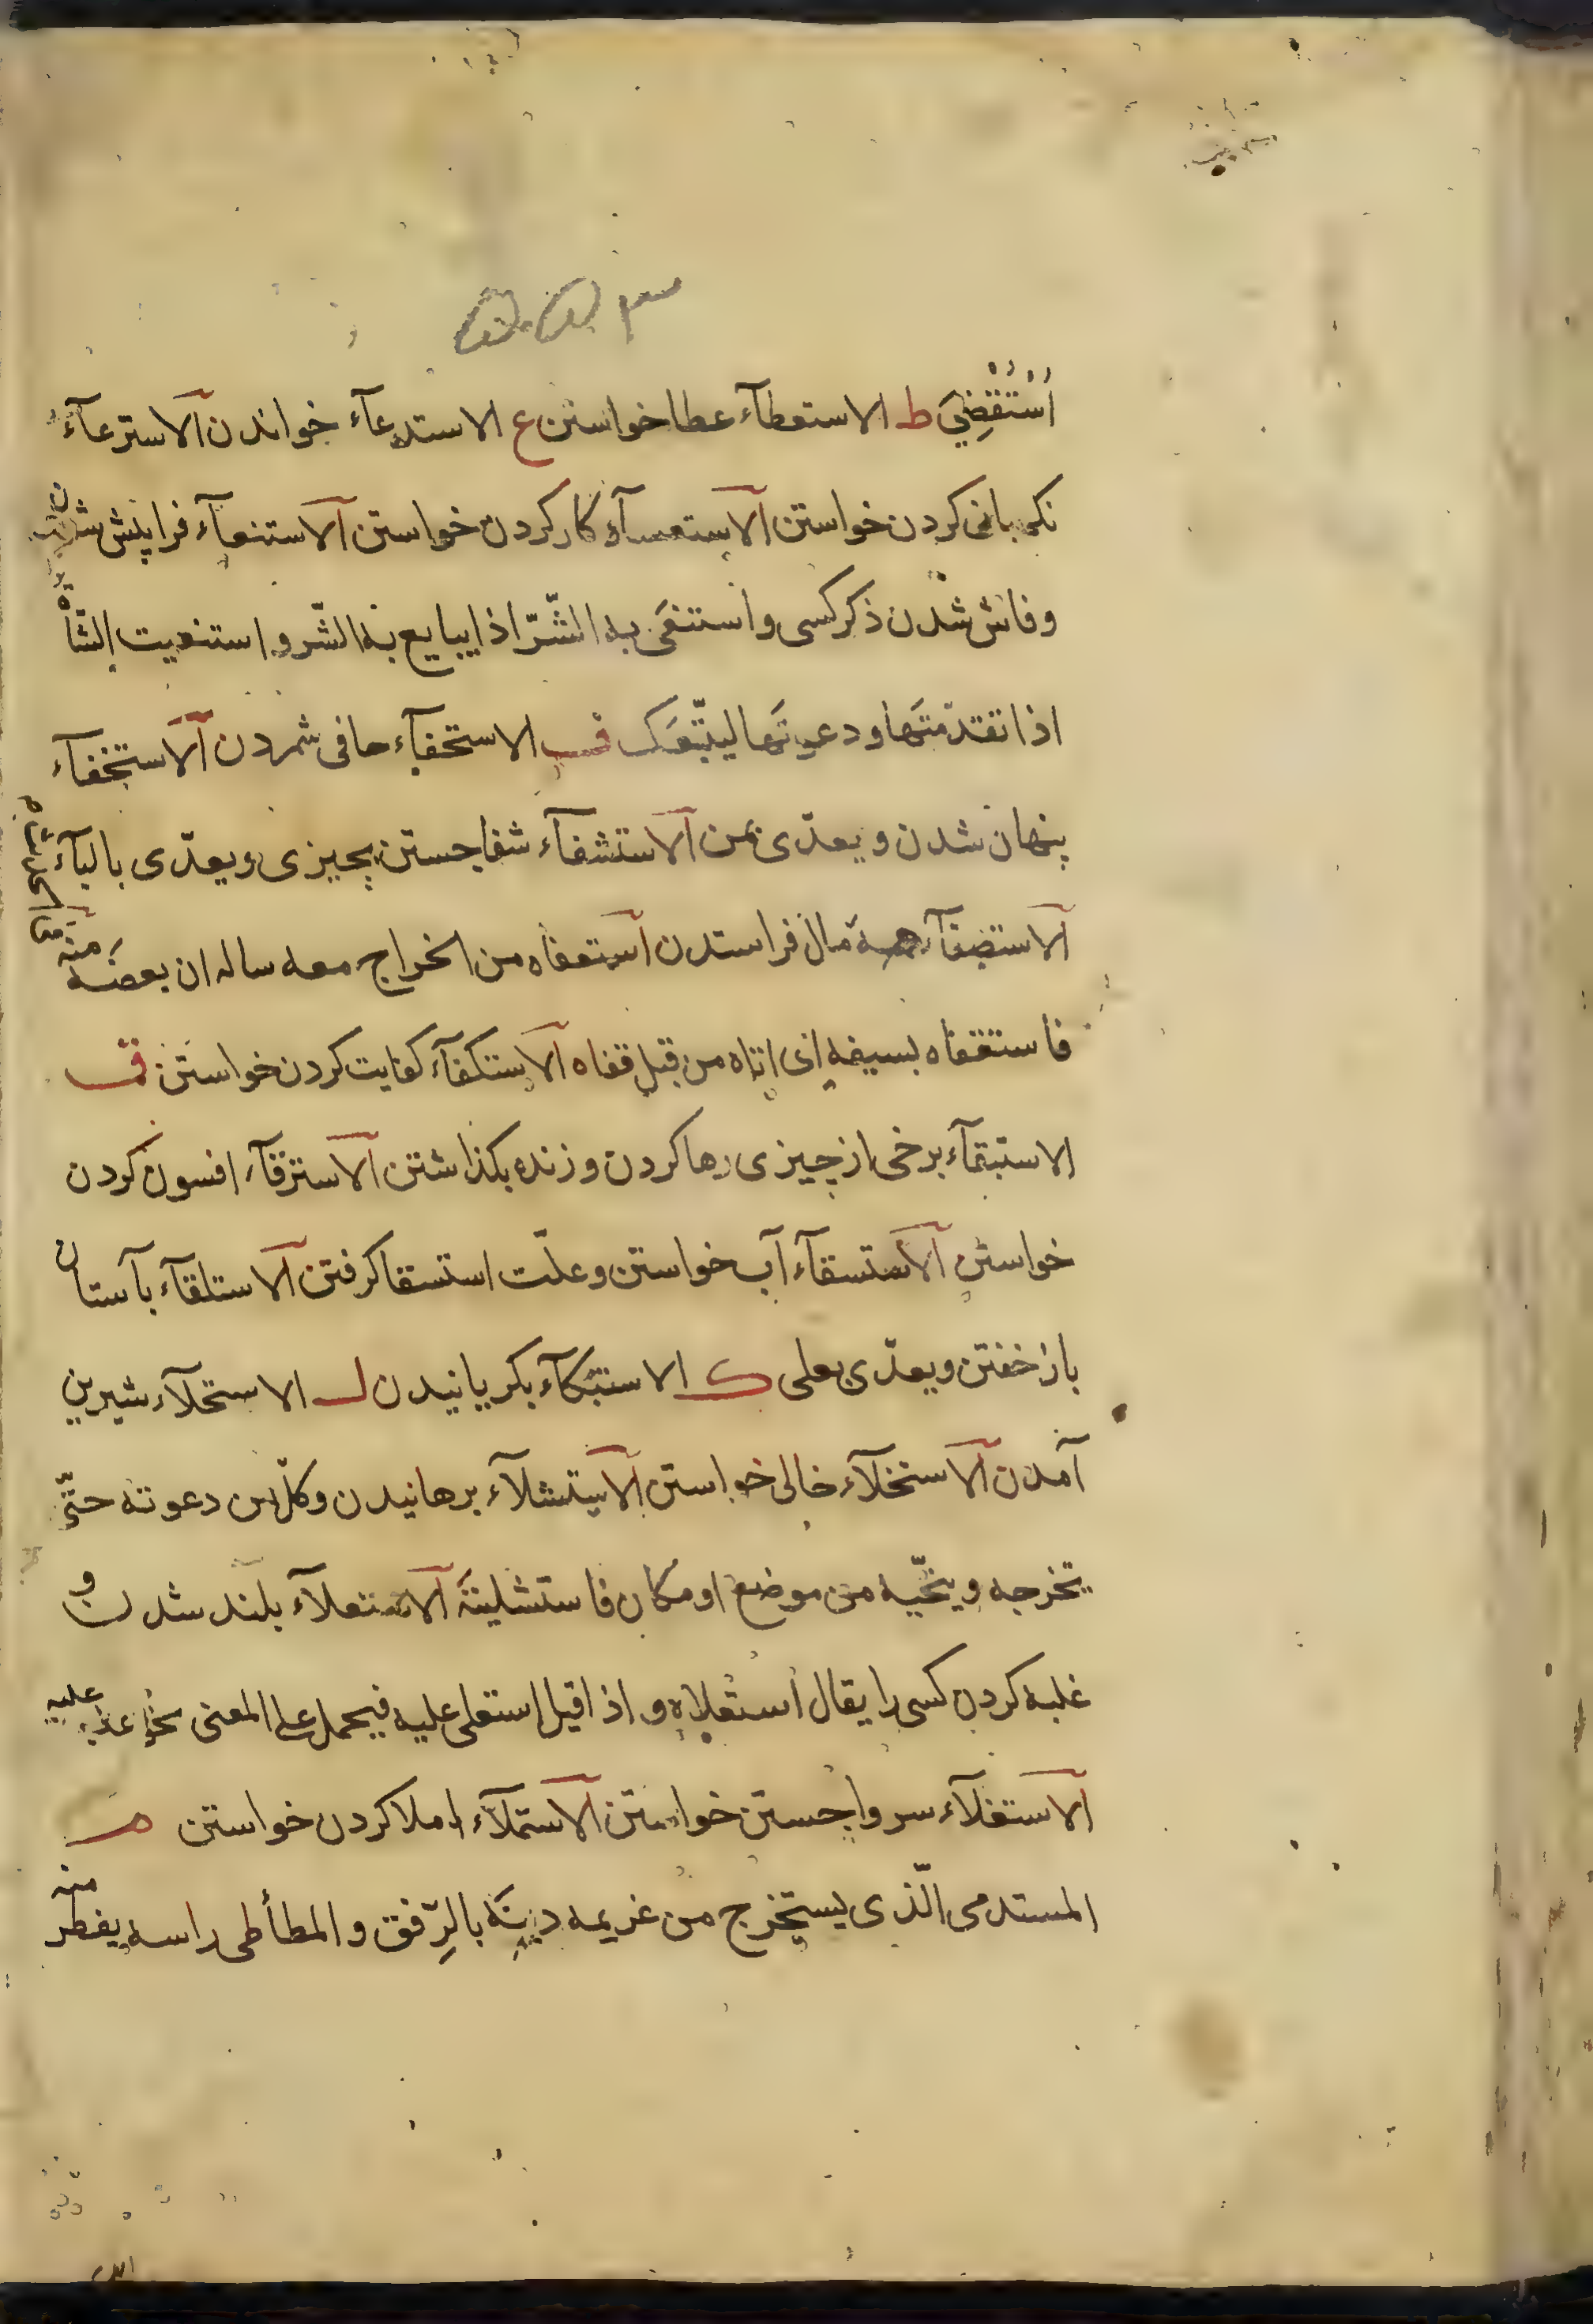 اُسْتُقْضِيَ ط الاستعطآء عطا خواستن ع الاستدعآء خواندن الاسترعآء
نكه بانی كردن خواستن الاستسعآء كار كردن خواستن الاستنعآء فرا پیش شدن
و فاش شدن ذكر كسی و استنعَی به الشّرّ اذا یبایع به الشّر و استنعیت الشاة
اذا تقدّمتَها و دعوتَها لیتّبعَک ف الاستحفآء حافی شمردن الاستخفآء
پنهان شدن و یعدّی بمن الاستشفآء شفا جستن بچیزی و یعدّی بالبآء
الاستصفآء همه مال فرا ستدن استعفاه من الخراج معه ساله ان یعفیه منه
فاستقفاه بسیفه ای اتاه من قبل قفاه الاستكفآء كفایت كردن خواستن ق
الاستبقآء برخی از چیزی رها كردن و زنده بكذاشتن الاسترقآء افسون كردن
خواستن الاستسقآء آب خواستن و علّت استسقا كرفتن الاستلقآء بآستان
باز خفتن و یعدّی بعلی ک الاستبكآء بكریانیدن ل الاستحلآء شیرین
آمدن الاستخلآء خالی خواستن الاستشلآء برهانیدن و كلّ من دعوته حتّی
تخرجه و ینحّیه من موضع او مكان فاستشلیتَه الاستعلآء بلند شدن و
غلبه كردن كسی را یقال استعلاه و اذا قیل استعلی علیه فیحمل علی المعنی نحو علیه
الاستفلآء سر وا جستن خواستن الاستملآء املا كردن خواستن م
المستدمی الّذی یستخرج من غریمه دینَه بالرِّفق و المطأطی راسه یقطر منه